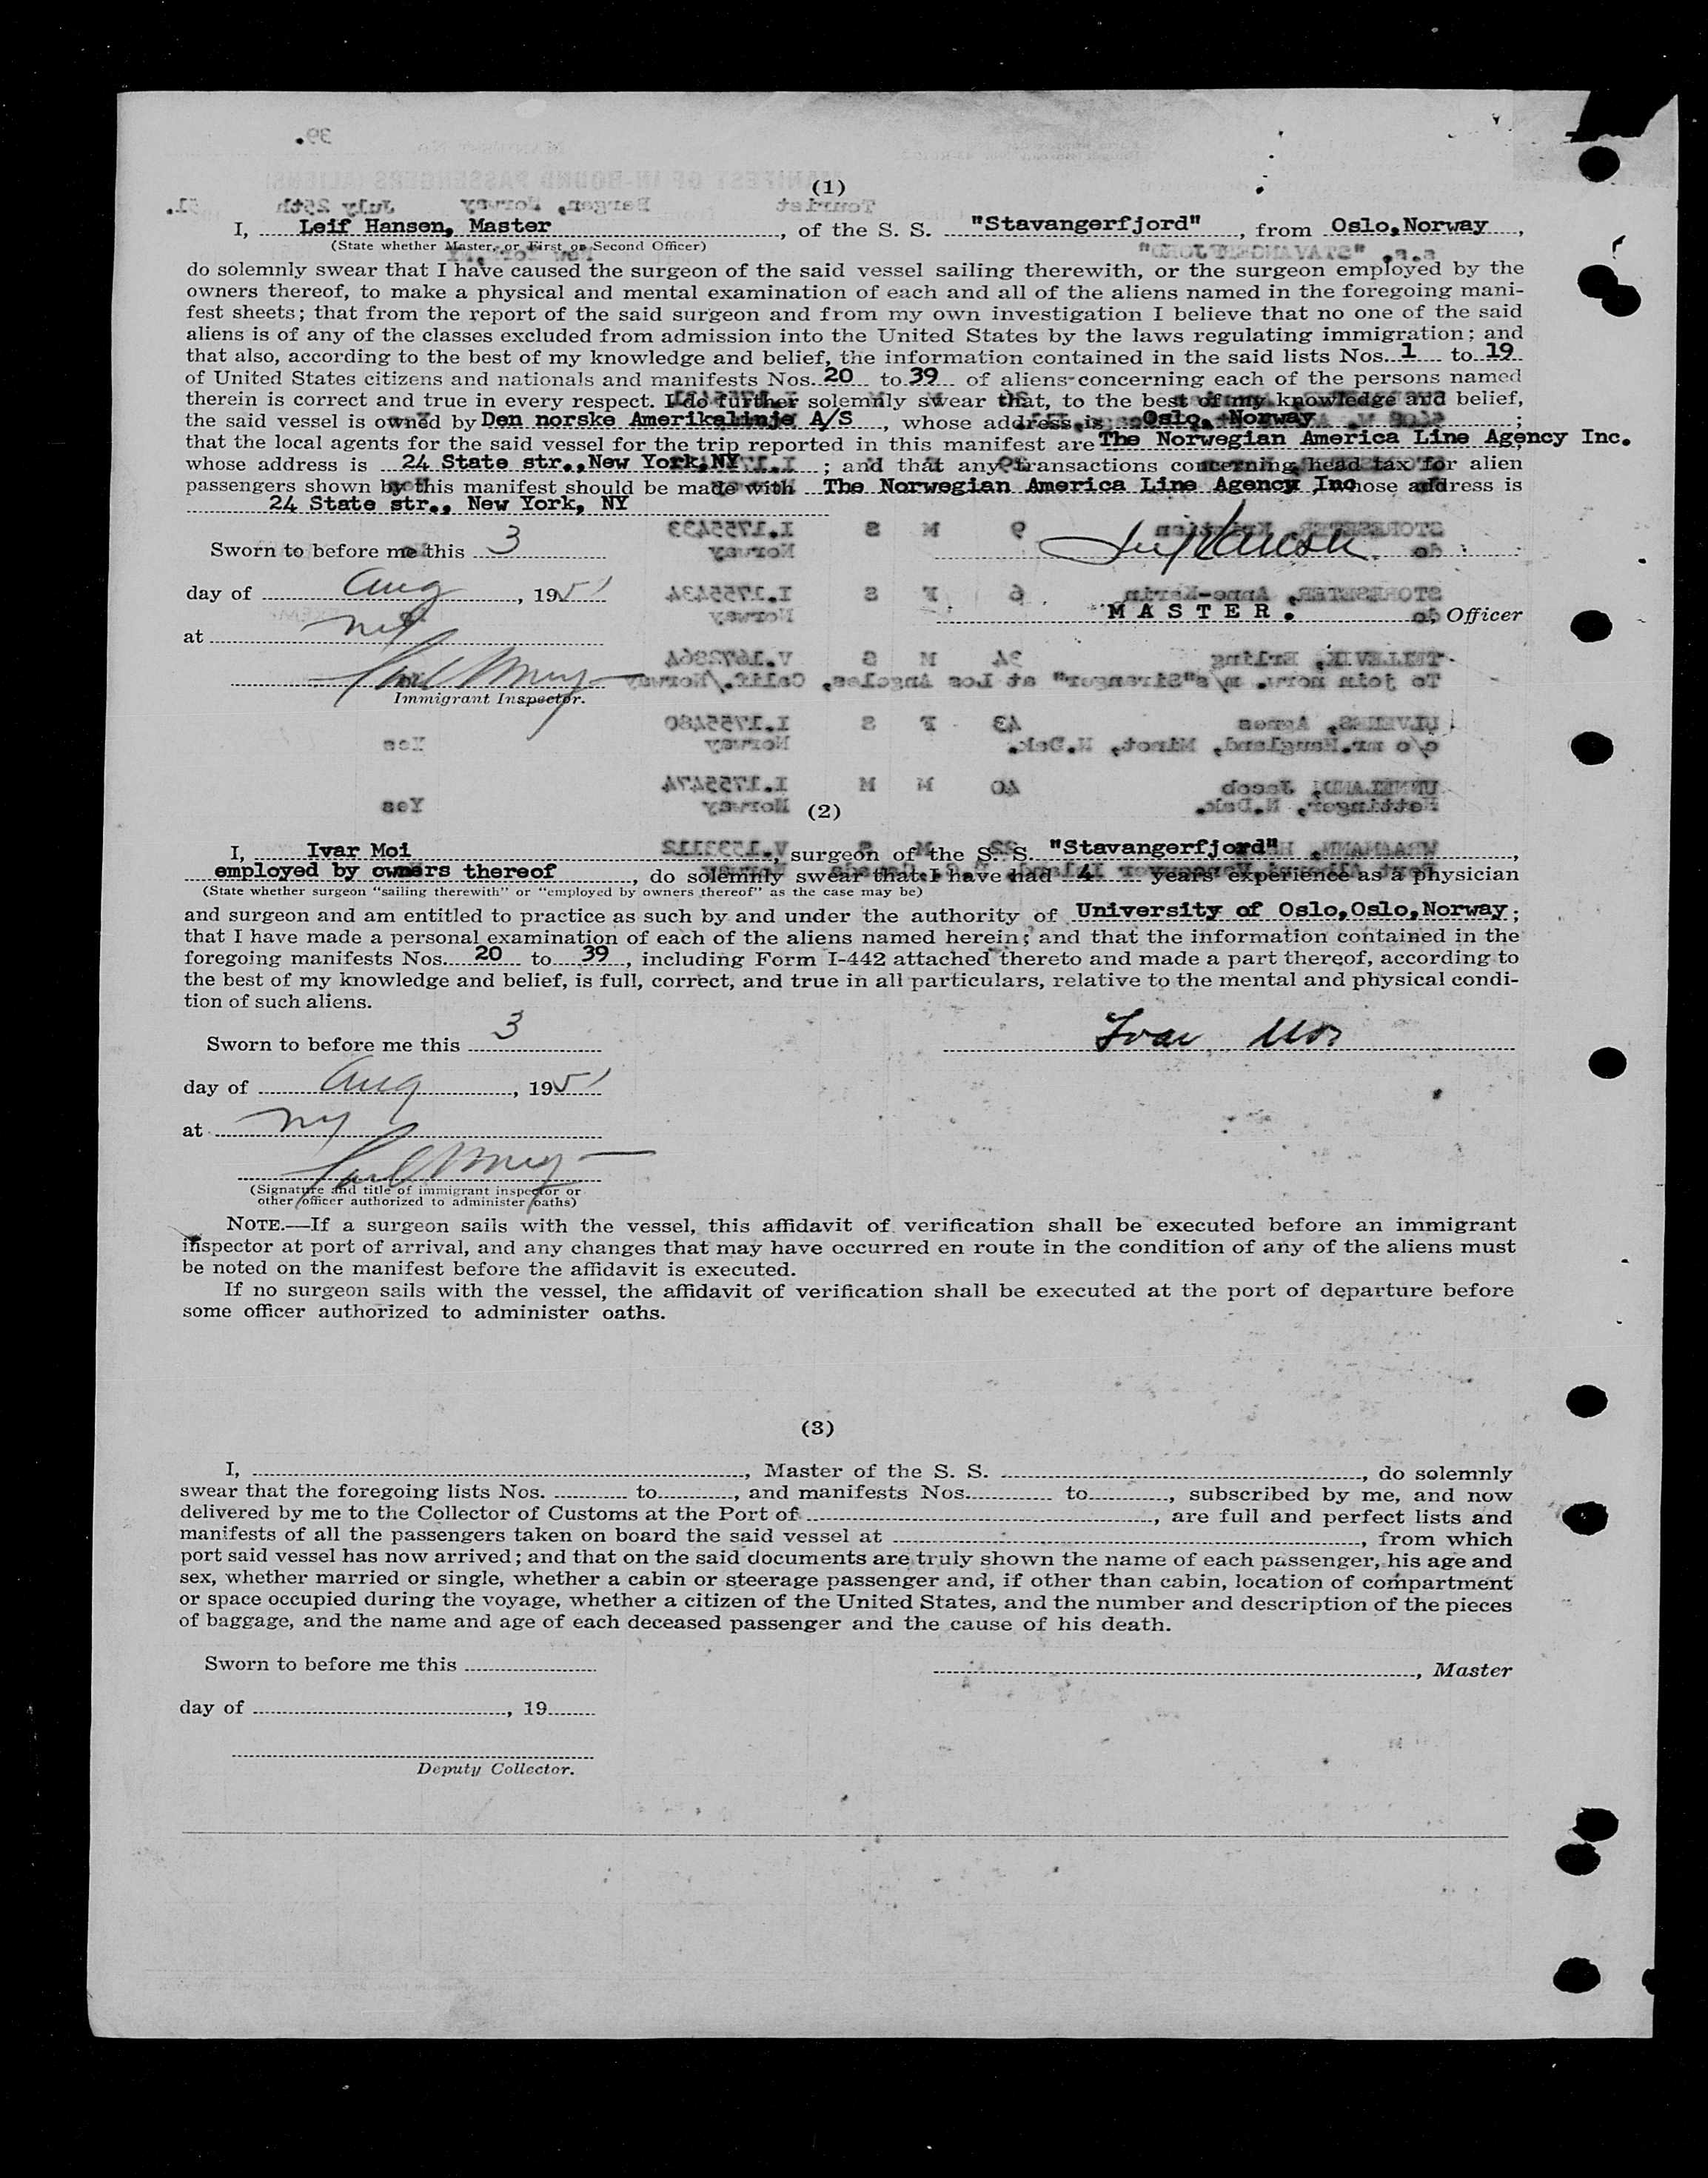 (1)
I, Leif Hansen, Master, of the S. S. "Stavangerfjord", from Oslo, Norway,
(State whether Master, or First or Second Officer)
do solemnly swear that I have caused the surgeon of the said vessel sailing therewith, or the surgeon employed by the
owners thereof, to make a physical and mental examination of each and all of the aliens named in the foregoing mani-
fest sheets; that from the report of the said surgeon and from my own investigation I believe that no one of the said
aliens is of any of the classes excluded from admission into the United States by the laws regulating immigration; and
that also, according to the best of my knowledge and belief, the information contained in the said lists Nos. 1 to 19
of United States citizens and nationals and manifests Nos. 20 to 39 of aliens concerning each of the persons named
therein is correct and true in every respect. I do further solemnly swear that, to the best of my knowledge and belief,
the said vessel is owned by Den norske Amerikalinje A/S, whose address is Oslo, Norway;
that the local agents for the said vessel for the trip reported in this manifest are The Norwegian America Line Agency Inc.
whose address is 24 State str., New York, NY; and that any transactions concerning head tax for alien
passengers shown by this manifest should be made with The Norwegian America Line Agency Inc whose address is
24 State str., New York, NY
Sworn to before me this 3
day of Aug, 1951
MASTER., Officer
at NY
Immigrant Inspector.
(2)
I, Ivar Moi, surgeon of the S. S. "Stavangerfjord",
employed by owners thereof, do solemnly swear that I have had 4 years' experience as a physician
(State whether surgeon "sailing therewith" or "employed by owners thereof" as the case may be)
and surgeon and am entitled to practice as such by and under the authority of University of Oslo, Oslo, Norway;
that I have made a personal examination of each of the aliens named herein; and that the information contained in the
foregoing manifests Nos. 20 to 39, including Form I-442 attached thereto and made a part thereof, according to
the best of my knowledge and belief, is full, correct, and true in all particulars, relative to the mental and physical condi-
tion of such aliens.
Sworn to before me this 3
Ivar Moi
day of Aug, 1951
at NY
(Signature and title of immigrant inspector or
other officer authorized to administer oaths)
NOTE.—If a surgeon sails with the vessel, this affidavit of verification shall be executed before an immigrant
inspector at port of arrival, and any changes that may have occurred en route in the condition of any of the aliens must
be noted on the manifest before the affidavit is executed.
If no surgeon sails with the vessel, the affidavit of verification shall be executed at the port of departure before
some officer authorized to administer oaths.
(3)
I, , Master of the S. S. , do solemnly
swear that the foregoing lists Nos. to , and manifests Nos. to , subscribed by me, and now
delivered by me to the Collector of Customs at the Port of , are full and perfect lists and
manifests of all the passengers taken on board the said vessel at , from which
port said vessel has now arrived; and that on the said documents are truly shown the name of each passenger, his age and
sex, whether married or single, whether a cabin or steerage passenger and, if other than cabin, location of compartment
or space occupied during the voyage, whether a citizen of the United States, and the number and description of the pieces
of baggage, and the name and age of each deceased passenger and the cause of his death.
Sworn to before me this
, Master
day of , 19
Deputy Collector.